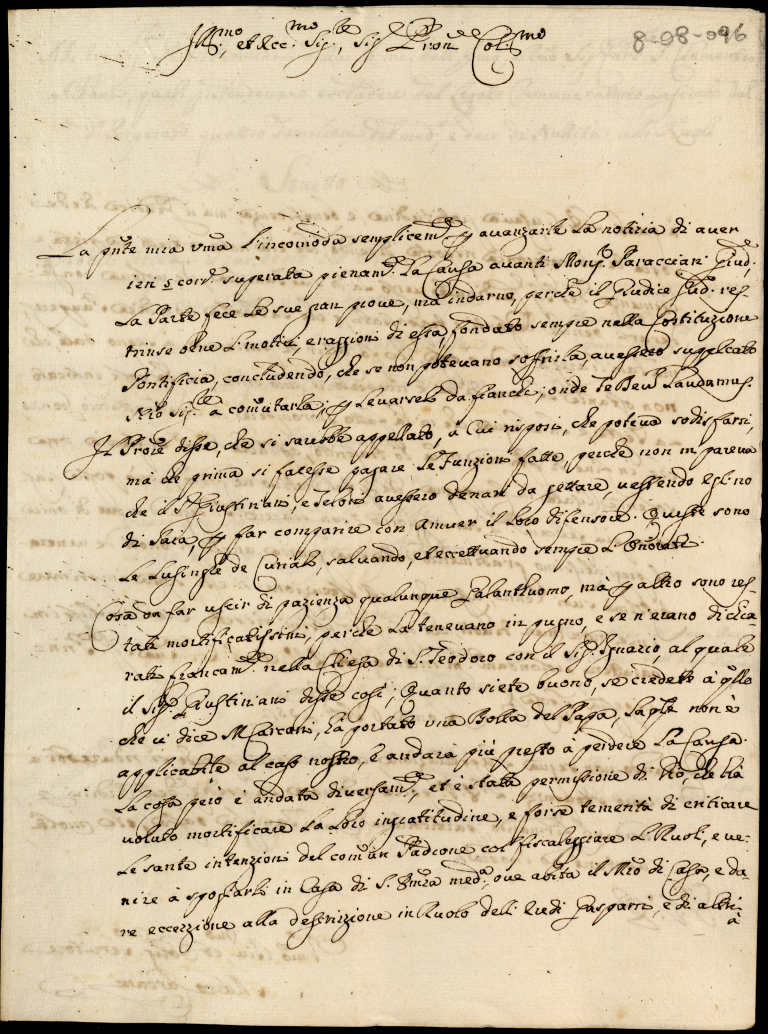 8-98-096
Ill.mo, et Ecc.mo Sig.re, Sig.r P.ron Col.mo
La pnte mia vma l'incomoda semplicem.te p avanzarle la notizia di aver
ieri s cord. superata pienam.te la Causa avanti Mons.r Paracciani Giud.
La Parte fece le sue gran prove, mà indarno, perche il Giudice Sud. res-
trinse i motivi, e raggioni di essa, fondato sempre nella Costituzione
Pontificia, concludendo, che se non potevano soffrirla, avessero supplicato
Nro Sig.re à comutarla, p levarseli da fianchi; onde Te Deu Laudamus.
Il Prore disse, che si sarebbe appellato, à cui risposi, che poteva sodisfarsi,
mà che prima si facesse pagare le funzioni fatte, perche non mi pareva
che il S.r Giustiniani, e avessero denari da gettare,
di far comparire con il loro difensore. Queste sono
le lusinghe de Curiali, salvando, et eccettuando sempre
Cosa da far uscir di pazienza qualunque Galanthuomo, mà p altro sono res-
tati mortificatissimi, perche la tenevano in pugno, e se n'erano dichia-
rati francam.te nella Chiesa di S. Teodoro con il Sig.r Ignazio, al quale
il Sig.r Giustiniani disse così; Quanto siete buono, se credete à qllo
che vi dice Marcani, hà portato una Bolla del Papa, la qle non è
applicabile al caso nostro, e andarà più presto à perdere la Causa.
La cosa però è andata diversam.te, et è stata permissione di Dio, che hà
voluto mortificare la loro ingratitudine, e forse temerità di criticare
le sante intenzioni del comun Padrone col fiscaleggiare l'Ruoli, e ve-
nire à sgostarli in Casa di S. Emza med.a, ove abita il Mro di Casa, e da-
re eccezzione alla descrizzione in Ruolo delli Redi Gasparri, e di altri
à